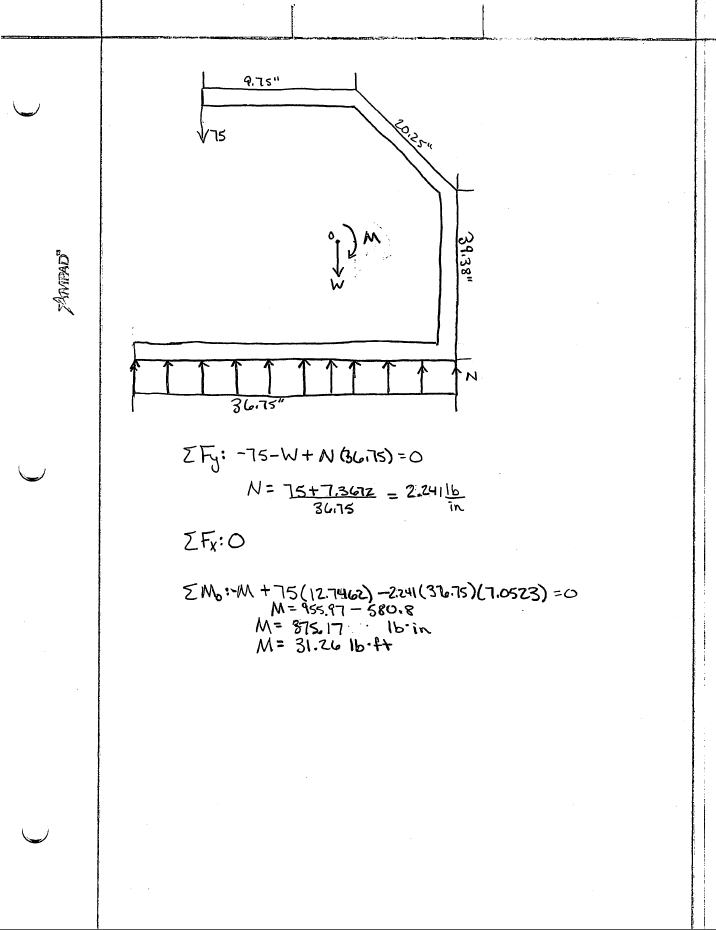 9.75"
20.25"
75
39.38"
O
M
W
AMPAD
N
36.75"
ΣFy: -75-W+N(36.75)=0
N = 75+7.3672 / 36.75 = 2.241 lb/in
ΣFx: 0
ΣMo: -M + 75(12.7462) - 2.241(36.75)(7.0523) = 0
M = 955.97 - 580.8
M = 375.17 lb·in
M = 31.26 lb·ft